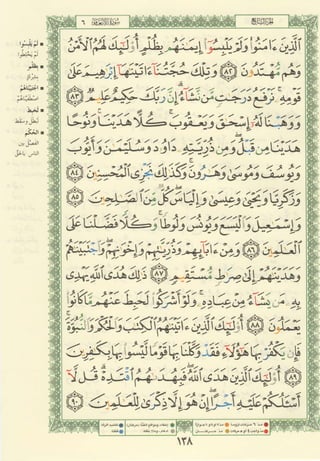 الجزء السابع
سورة الأنعام ٦
ٱلَّذِينَ ءَامَنُوا۟ وَلَمْ يَلْبِسُوٓا۟ إِيمَـٰنَهُم بِظُلْمٍ أُو۟لَـٰٓئِكَ لَهُمُ ٱلْأَمْنُ
وَهُم مُّهْتَدُونَ ٨٢ وَتِلْكَ حُجَّتُنَآ ءَاتَيْنَـٰهَآ إِبْرَٰهِيمَ عَلَىٰ
قَوْمِهِۦ ۚ نَرْفَعُ دَرَجَـٰتٍ مَّن نَّشَآءُ ۗ إِنَّ رَبَّكَ حَكِيمٌ عَلِيمٌ ٨٣
وَوَهَبْنَا لَهُۥٓ إِسْحَـٰقَ وَيَعْقُوبَ ۚ كُلًّا هَدَيْنَا ۚ وَنُوحًا
هَدَيْنَا مِن قَبْلُ ۖ وَمِن ذُرِّيَّتِهِۦ دَاوُۥدَ وَسُلَيْمَـٰنَ وَأَيُّوبَ
وَيُوسُفَ وَمُوسَىٰ وَهَـٰرُونَ ۚ وَكَذَٰلِكَ نَجْزِى ٱلْمُحْسِنِينَ ٨٤
وَزَكَرِيَّا وَيَحْيَىٰ وَعِيسَىٰ وَإِلْيَاسَ ۖ كُلٌّ مِّنَ ٱلصَّـٰلِحِينَ ٨٥
وَإِسْمَـٰعِيلَ وَٱلْيَسَعَ وَيُونُسَ وَلُوطًا ۚ وَكُلًّا فَضَّلْنَا عَلَى
ٱلْعَـٰلَمِينَ ٨٦ وَمِنْ ءَابَآئِهِمْ وَذُرِّيَّـٰتِهِمْ وَإِخْوَٰنِهِمْ ۖ وَٱجْتَبَيْنَـٰهُمْ
وَهَدَيْنَـٰهُمْ إِلَىٰ صِرَٰطٍ مُّسْتَقِيمٍ ٨٧ ذَٰلِكَ هُدَى ٱللَّهِ يَهْدِى
بِهِۦ مَن يَشَآءُ مِنْ عِبَادِهِۦ ۚ وَلَوْ أَشْرَكُوا۟ لَحَبِطَ عَنْهُم مَّا كَانُوا۟
يَعْمَلُونَ ٨٨ أُو۟لَـٰٓئِكَ ٱلَّذِينَ ءَاتَيْنَـٰهُمُ ٱلْكِتَـٰبَ وَٱلْحُكْمَ وَٱلنُّبُوَّةَ ۚ
فَإِن يَكْفُرْ بِهَا هَـٰٓؤُلَآءِ فَقَدْ وَكَّلْنَا بِهَا قَوْمًا لَّيْسُوا۟ بِهَا بِكَـٰفِرِينَ
٨٩ أُو۟لَـٰٓئِكَ ٱلَّذِينَ هَدَى ٱللَّهُ ۖ فَبِهُدَىٰهُمُ ٱقْتَدِهْ ۗ قُل لَّآ
أَسْـَٔلُكُمْ عَلَيْهِ أَجْرًا ۖ إِنْ هُوَ إِلَّا ذِكْرَىٰ لِلْعَـٰلَمِينَ ٩٠
لَمْ يَلْبِسُوا
لم يخلطوا
بِظُلْمٍ
بشرك
اجْتَبَيْنَاهُمْ
اصطفيناهم
لَحَبِطَ
لبطل وسقط
الْحُكْمَ
الفصل بين
الناس بالحق
١٣٨